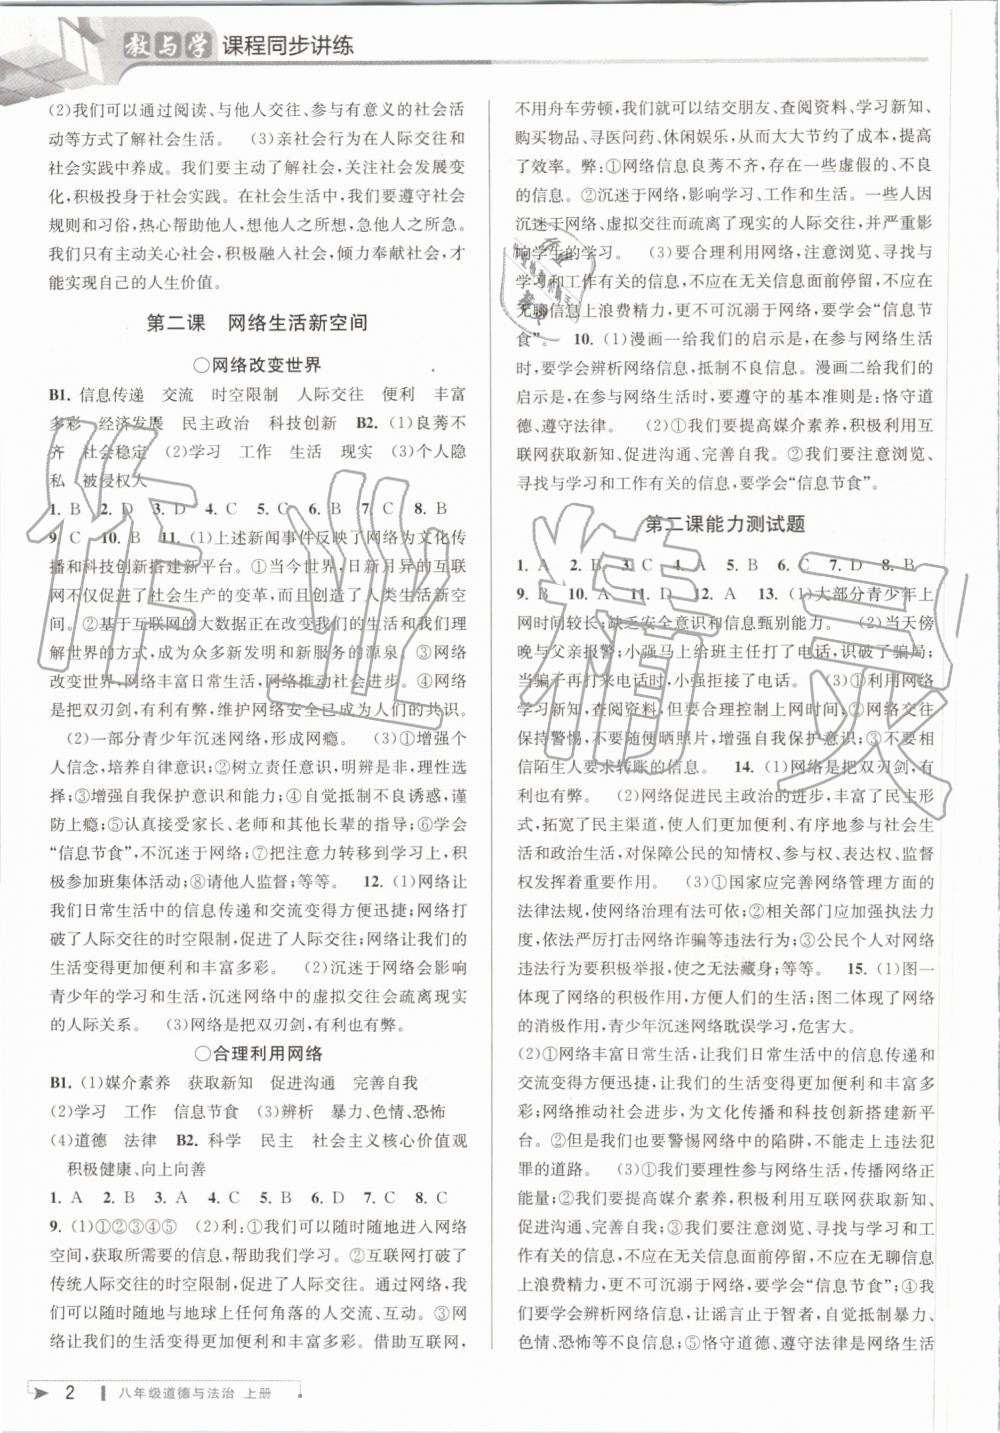 教与学 课程同步讲练
(2)我们可以通过阅读、与他人交往、参与有意义的社会活
动等方式了解社会生活。 (3)亲社会行为在人际交往和
社会实践中养成。我们要主动了解社会,关注社会发展变
化,积极投身于社会实践。在社会生活中,我们要遵守社会
规则和习俗,热心帮助他人,想他人之所想,急他人之所急。
我们只有主动关心社会,积极融入社会,倾力奉献社会,才
能实现自己的人生价值。
第二课 网络生活新空间
○网络改变世界
B1. 信息传递 交流 时空限制 人际交往 便利 丰富
多彩 经济发展 民主政治 科技创新 B2. (1)良莠不
齐 社会稳定 (2)学习 工作 生活 现实 (3)个人隐
私 被侵权人
1. B 2. D 3. D 4. C 5. C 6. B 7. C 8. B
9. C 10. B 11. (1)上述新闻事件反映了网络为文化传
播和科技创新搭建新平台。①当今世界,日新月异的互联
网不仅促进了社会生产的变革,而且创造了人类生活新空
间。②基于互联网的大数据正在改变我们的生活和我们理
解世界的方式,成为众多新发明和新服务的源泉。③网络
改变世界,网络丰富日常生活,网络推动社会进步。④网络
是把双刃剑,有利有弊,维护网络安全已成为人们的共识。
(2)一部分青少年沉迷网络,形成网瘾。 (3)①增强个
人信念,培养自律意识;②树立责任意识,明辨是非,理性选
择;③增强自我保护意识和能力;④自觉抵制不良诱惑,谨
防上瘾;⑤认真接受家长、老师和其他长辈的指导;⑥学会
“信息节食”,不沉迷于网络;⑦把注意力转移到学习上,积
极参加班集体活动;⑧请他人监督;等等。 12. (1)网络让
我们日常生活中的信息传递和交流变得方便迅捷;网络打
破了人际交往的时空限制,促进了人际交往;网络让我们的
生活变得更加便利和丰富多彩。 (2)沉迷于网络会影响
青少年的学习和生活,沉迷网络中的虚拟交往会疏离现实
的人际关系。 (3)网络是把双刃剑,有利也有弊。
○合理利用网络
B1. (1)媒介素养 获取新知 促进沟通 完善自我
(2)学习 工作 信息节食 (3)辨析 暴力、色情、恐怖
(4)道德 法律 B2. 科学 民主 社会主义核心价值观
积极健康、向上向善
1. A 2. B 3. A 4. C 5. B 6. D 7. B 8. C
9. (1)①②③④⑤ (2)利:①我们可以随时随地进入网络
空间,获取所需要的信息,帮助我们学习。②互联网打破了
传统人际交往的时空限制,促进了人际交往。通过网络,我
们可以随时随地与地球上任何角落的人交流、互动。③网
络让我们的生活变得更加便利和丰富多彩。借助互联网,
不用舟车劳顿,我们就可以结交朋友、查阅资料、学习新知、
购买物品、寻医问药、休闲娱乐,从而大大节约了成本,提高
了效率。弊:①网络信息良莠不齐,存在一些虚假的、不良
的信息。②沉迷于网络,影响学习、工作和生活。一些人因
沉迷于网络、虚拟交往而疏离了现实的人际交往,并严重影
响学生的学习。 (3)要合理利用网络,注意浏览、寻找与
学习和工作有关的信息,不应在无关信息面前停留,不应在
无聊信息上浪费精力,更不可沉溺于网络,要学会“信息节
食”。 10. (1)漫画一给我们的启示是,在参与网络生活
时,要学会辨析网络信息,抵制不良信息。漫画二给我们的
启示是,在参与网络生活时,要遵守的基本准则是:恪守道
德、遵守法律。 (2)①我们要提高媒介素养,积极利用互
联网获取新知、促进沟通、完善自我。②我们要注意浏览、
寻找与学习和工作有关的信息,要学会“信息节食”。
第二课能力测试题
1. A 2. B 3. C 4. A 5. B 6. C 7. D 8. B
9. B 10. A 11. D 12. A 13. (1)大部分青少年上
网时间较长;缺乏安全意识和信息甄别能力。 (2)当天傍
晚与父亲报警;小强马上给班主任打了电话,识破了骗局;
当骗子再打来电话时,小强拒接了电话。 (3)①利用网络
学习新知,查阅资料,但要合理控制上网时间;②网络交往
保持警惕,不要随便晒照片,增强自我保护意识;③不要相
信陌生人要求转账的信息。 14. (1)网络是把双刃剑,有
利也有弊。 (2)网络促进民主政治的进步,丰富了民主形
式,拓宽了民主渠道,使人们更加便利、有序地参与社会生
活和政治生活,对保障公民的知情权、参与权、表达权、监督
权发挥着重要作用。 (3)①国家应完善网络管理方面的
法律法规,使网络治理有法可依;②相关部门应加强执法力
度,依法严厉打击网络诈骗等违法行为;③公民个人对网络
违法行为要积极举报,使之无法藏身;等等。 15. (1)图一
体现了网络的积极作用,方便人们的生活;图二体现了网络
的消极作用,青少年沉迷网络耽误学习,危害大。
(2)①网络丰富日常生活,让我们日常生活中的信息传递和
交流变得方便迅捷,让我们的生活变得更加便利和丰富多
彩;②网络推动社会进步,为文化传播和科技创新搭建新平
台。但同时,我们也要警惕网络中的陷阱,不要走上违法犯
罪的道路。 (3)①我们要理性参与网络生活,传播网络正
能量;②我们要提高媒介素养,积极利用互联网获取新知、
促进沟通、完善自我;③我们要注意浏览、寻找与学习和工
作有关的信息,不应在无关信息面前停留,不应在无聊信息
上浪费精力,更不可沉溺于网络,要学会“信息节食”;④我
们要学会辨析网络信息,让谣言止于智者,自觉抵制暴力、
色情、恐怖等不良信息;⑤恪守道德、遵守法律是网络生活
2 八年级道德与法治 上册
作业精灵